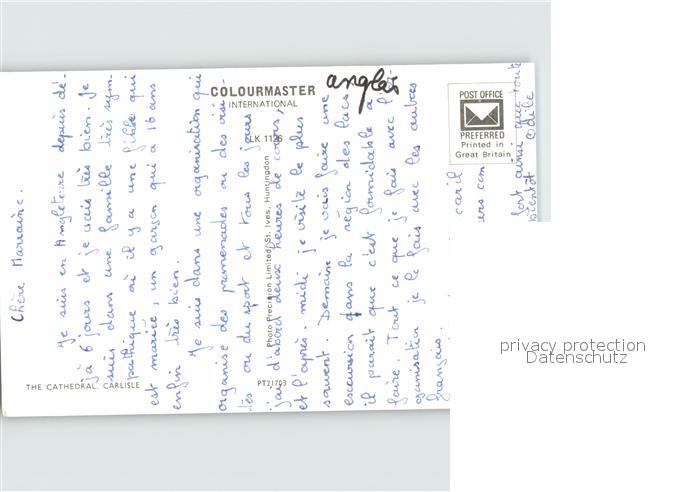 COLOURMASTER
INTERNATIONAL
anglais
POST OFFICE
PREFERRED
Printed in
Great Britain
LK 1126
Photo Precision Limited, St. Ives, Huntingdon
THE CATHEDRAL, CARLISLE
PT21703
Chère Marraine.
Je suis en Angleterre depuis dé-
jà 6 jours et je vais très bien. Je
suis dans une famille très sym-
pathique où il y a une fille qui
est mariée, un garçon qui a 16 ans
enfin très bien.
Je suis dans une organisation qui
organise des promenades ou des visi-
tes ou du sport et tous les jours
j'ai d'abord deux heures de cours,
et l'après-midi je visite le plus
souvent. Demain je vais faire une
excursion dans la région des lacs
il parait que c'est formidable à
faire. Tout ce que je fais avec l'or-
ganisation je le fais avec les autres
français.
caril
urs com
fort ainsi que toute
bientôt Odile
privacy protection
Datenschutz